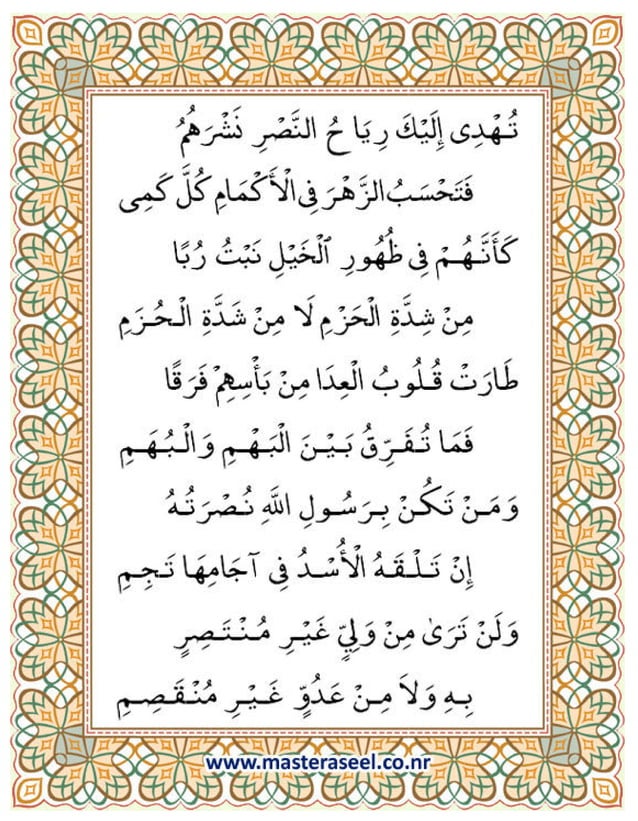 تُهْدِى إِلَيْكَ رِيَاحُ النَّصْرِ نَشْرَهُمُ
فَتَحْسَبُ الزَّهْرَ فِى الْأَكْمَامِ كُلَّ كَمِى
كَأَنَّهُمْ فِى ظُهُورِ الْخَيْلِ نَبْتُ رُبًا
مِنْ شِدَّةِ الْحَزْمِ لَا مِنْ شَدَّةِ الْحُزَمِ
طَارَتْ قُلُوبُ الْعِدَا مِنْ بَأْسِهِمْ فَرَقًا
فَمَا تُفَرِّقُ بَيْنَ الْبَهْمِ وَالْبُهَمِ
وَمَنْ تَكُنْ بِرَسُولِ اللَّهِ نُصْرَتُهُ
إِنْ تَلْقَهُ الْأُسْدُ فِى آجَامِهَا تَجِمِ
وَلَنْ تَرَىٰ مِنْ وَلِيٍّ غَيْرِ مُنْتَصِرٍ
بِهِ وَلَا مِنْ عَدُوٍّ غَيْرِ مُنْقَصِمِ
www.masteraseel.co.nr